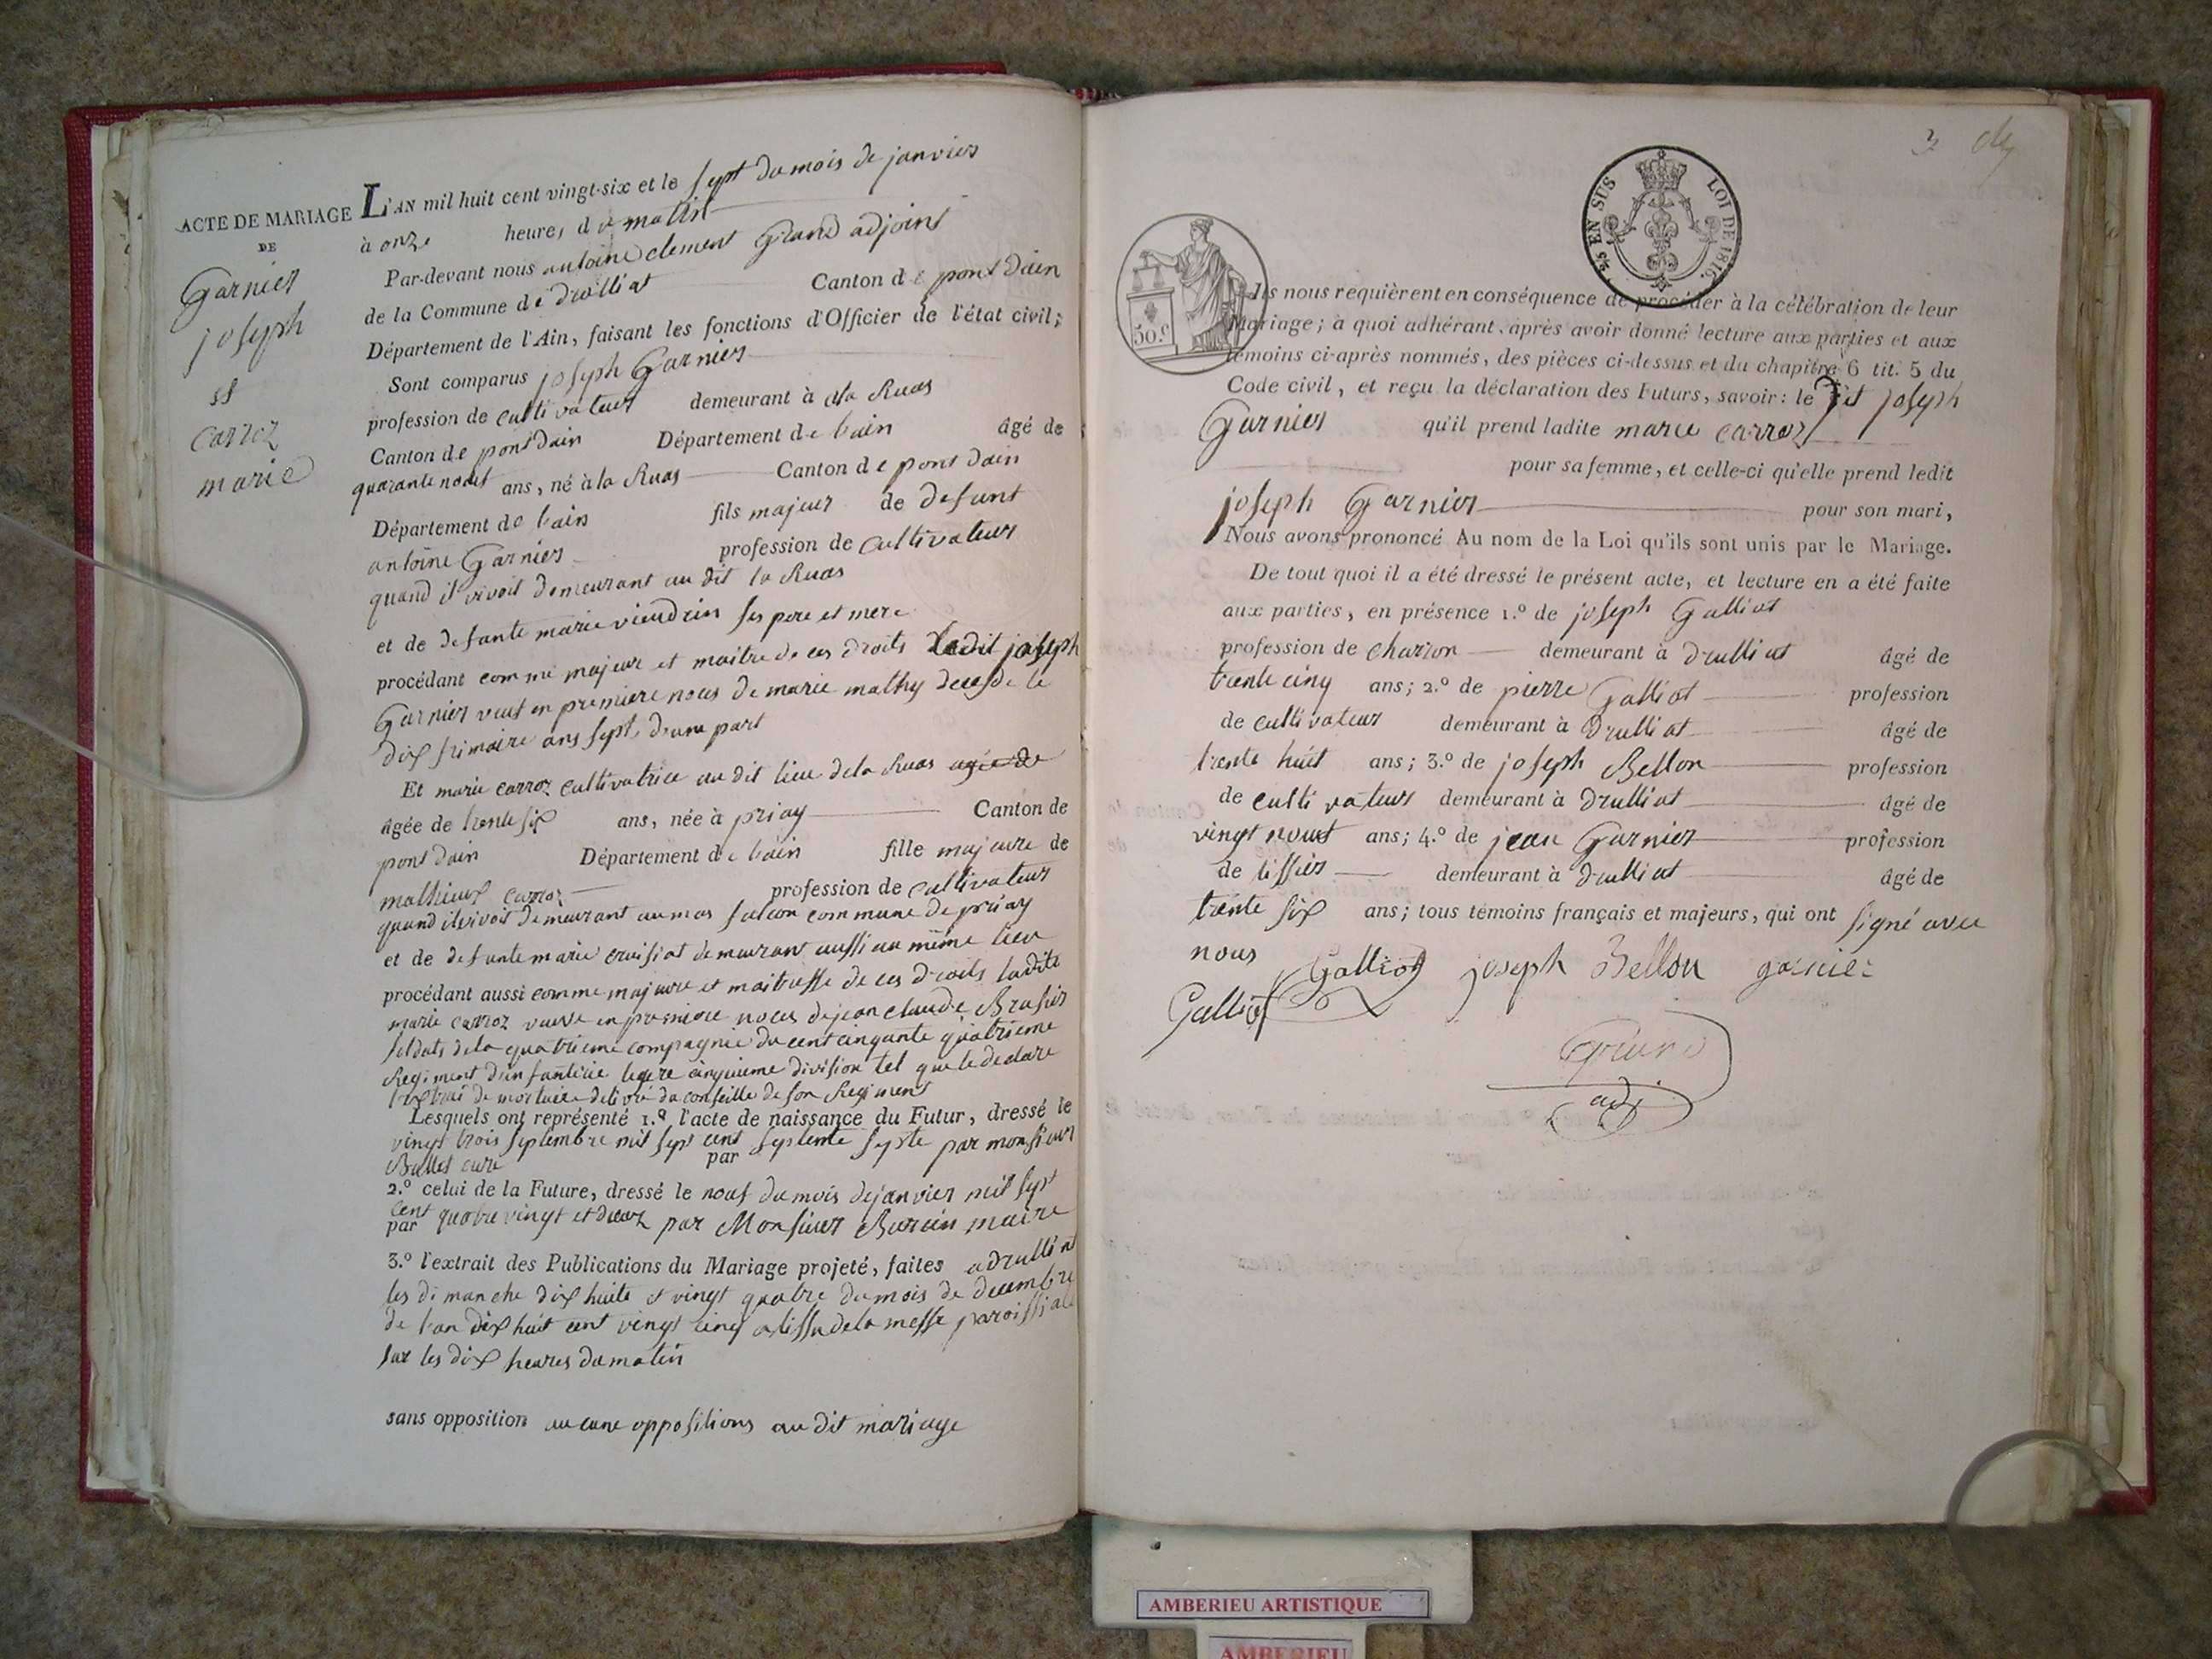 ACTE DE MARIAGE
DE
Garnier
joseph
et
Carroz
marie
L'AN mil huit cent vingt-six et le sept du mois de janvier
à onze heures du matin
Par-devant nous antoine clement Grand adjoint
de la Commune de drulliat Canton de pont dain
Département de l'Ain, faisant les fonctions d'Officier de l'état civil;
Sont comparus joseph Garnier
profession de cultivateur demeurant à la Ruas
Canton de pont dain Département de lain âgé de
quarante nauf ans, né à la Ruas Canton de pont dain
Département de lain fils majeur de defunt
antoine Garnier profession de cultivateur
quand il vivoit demeurant au dit la Ruas
et de defunte marie vieudrin ses pere et mere
procédant comme majeur et maitre de ces droits ledit joseph
Garnier veut en premiere noces de marie mathy decede le
dix frimaire ans sept, d'une part
Et marie carroz cultivatrice au dit lieu dela Ruas agée de
âgée de trente six ans, née à priay Canton de
pont dain Département de lain fille majeure de
mathieux carroz profession de cultivateur
quand il vivoit demeurant au mas falcon commune de priay
et de defunte marie cruisiat demeurant aussi au même lieu
procédant aussi comme majeure et maitresse de ces droits ladite
marie carroz veuve en premiere noces de jean claude Brasier
soldats dela quatrieme compagnie du cent cinquante quatrieme
Regiment d'infanterie legere cinquieme division tel que le declare
lextrai de mortuaire delivré du conseille de son Regiment
Lesquels ont représenté 1.º l'acte de naissance du Futur, dressé le
vingt trois septembre mil sept cent septente sypte par monsieur
Bullet curé par
2.º celui de la Future, dressé le nouf du mois de janvier mil sept
cent quatre vingt et dieux par Monsieur Burtin maire
par
3.º l'extrait des Publications du Mariage projeté, faites a drulliat
les dimanche dix huite et vingt quatre du mois de decembre
de l'an dix huit cent vingt cinq a lissu dela messe paroissiale
sur les dix heures du matin
sans opposition aucune oppositions au dit mariage
3
5/5 EN SUS LOI DE 1816.
50.c
Ils nous requièrent en conséquence de procéder à la célébration de leur
Mariage; à quoi adhérant, après avoir donné lecture aux parties et aux
témoins ci-après nommés, des pièces ci-dessus et du chapitre 6 tit. 5 du
Code civil, et reçu la déclaration des Futurs, savoir: le dit joseph
Garnier qu'il prend ladite marie carroz
pour sa femme, et celle-ci qu'elle prend ledit
joseph Garnier pour son mari,
Nous avons prononcé Au nom de la Loi qu'ils sont unis par le Mariage.
De tout quoi il a été dressé le présent acte, et lecture en a été faite
aux parties, en présence 1.º de joseph Galliot
profession de charron demeurant à drulliat âgé de
trente cinq ans; 2.º de pierre Galliot profession
de cultivateur demeurant à Drulliat âgé de
trente huit ans; 3.º de joseph Bellon profession
de cultivateur demeurant à drulliat âgé de
vingt nouf ans; 4.º de jean Garnier profession
de tissier demeurant à drulliat âgé de
trente six ans; tous témoins français et majeurs, qui ont signé avec
nous Galliot joseph Bellon garnier
Galliot
Grand
adj
AMBERIEU ARTISTIQUE
AMBERIEU